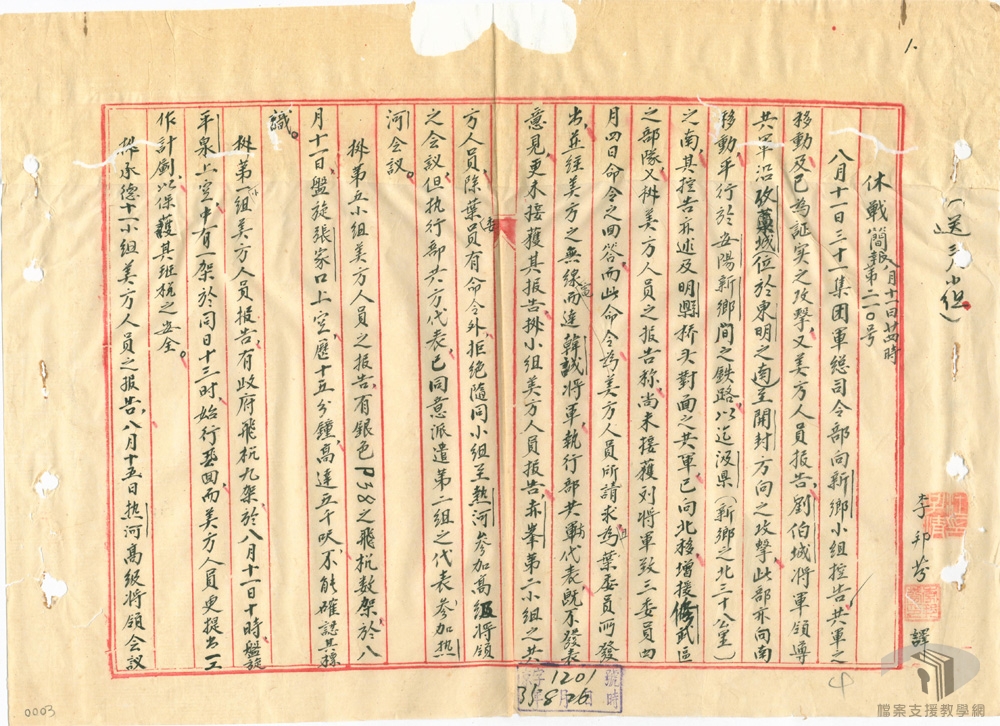 1.
(送三人小組)
休戰簡報第二一〇号
八月十一日廿四時
李邦芬 譯
八月十一日三十一集团軍總司令部向新鄉小組控告共軍之
移動及已為証实之攻擊,又美方人員报告,劉伯城將軍領導
共軍沿攻藁城(位於東明之南)至開封方向之攻擊,此部亦向南
移動,平行於安陽新鄉間之鉄路以迄汲県(新鄉之北三十公里)
之南,其控告亦述及明縣橋头對面之共軍,已向北移,增援修武區
之部隊,又㨿美方人員之报告称,尚未接獲刘將軍致三委員四
月四日命令之回答,而此命令為美方人員所請求,為葉委員所發
出,並経美方之無線電而達韓誠將軍執行部共軍代表既不發表
意見,更未接獲其报告,㨿小組美方人員报告,赤峯第二小組之共
方人員,除葉委員有命令外,拒絶隨同小組至熱河参加高級將領
之会议,但执行部共方代表,已同意派遣第二組之代表参加热
河会议。
㨿第五小組美方人員之报告,有銀色P38之飛机数架,於八
月十一日盤旋張家口上空,歷十五分鐘,高達五千呎,不能確認其標
識。
㨿第一組美方人員报告,有政府飛机九架,於八月十一日十時,盤旋
平泉上空,中有一架,於同日十三时,始行吾回,而美方人員更提出一工
作計劃,以保護其班机之安全。
㨿承德十一小組美方人員之报告,八月十五日热河高級將領会議
1201
35 8 26
號 時
年 月 日
0003
檔案支援教學網